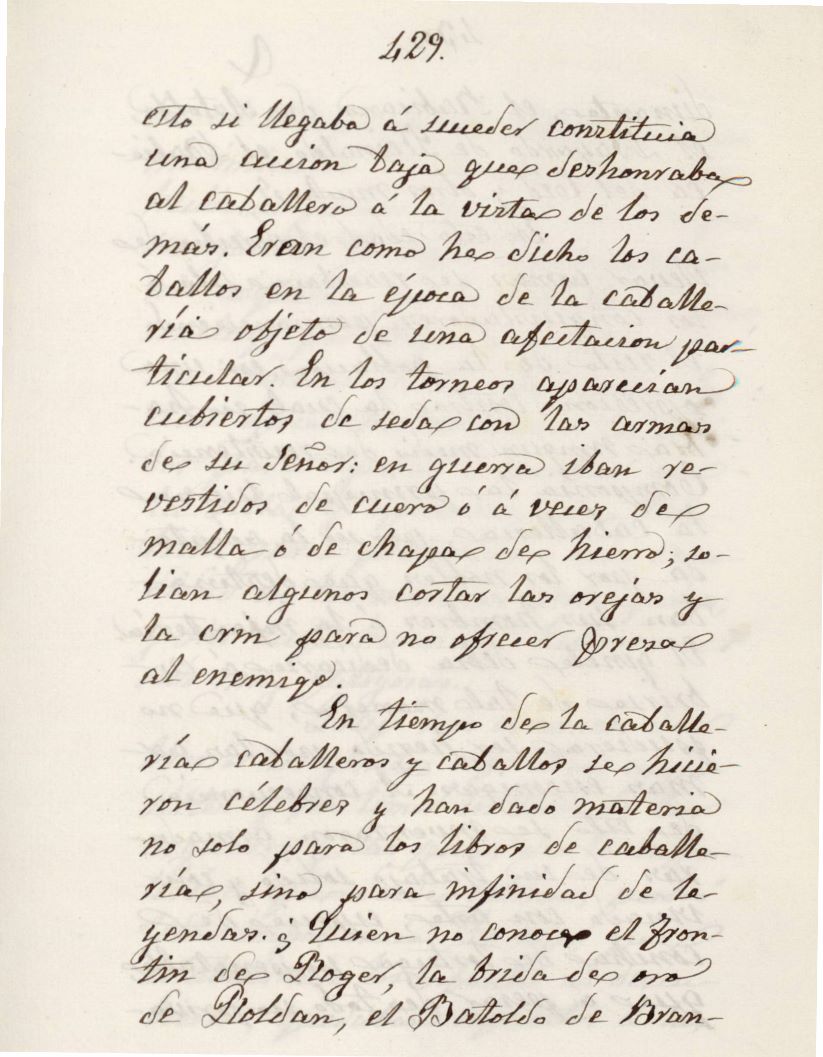 429.
esto si llegaba á suceder constituia
una accion baja que deshonraba
al caballero á la vista de los de-
más. Eran como he dicho los ca-
ballos en la época de la caballe-
ría objeto de una afectacion par-
ticular. En los torneos aparecian
cubiertos de seda con las armas
de su Señor: en guerra iban re-
vestidos de cuero ó á veces de
malla ó de chapa de hierro; so-
lian algunos cortar las orejas y
la crin para no ofrecer presa
al enemigo.
En tiempo de la caballe-
ría caballeros y caballos se hicie-
ron célebres y han dado materia
no solo para los libros de caballe-
ría, sino para infinidad de le-
yendas. ¿ Quien no conoce el Fron-
tin de Roger, la brida de oro
de Roldan, el Batoldo de Bran-